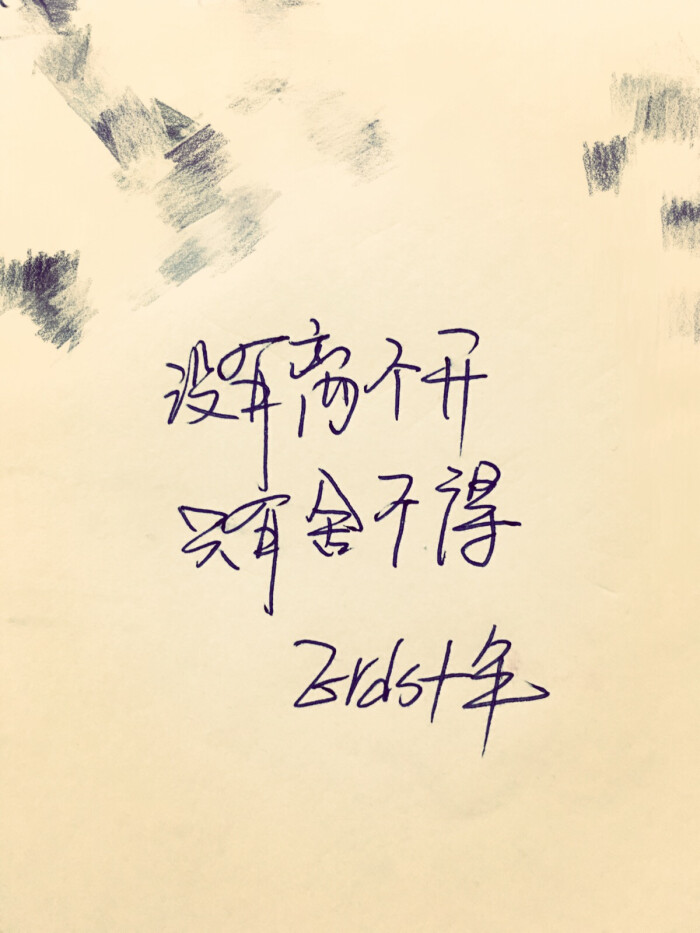 没有离不开
只有舍不得
Erds十年